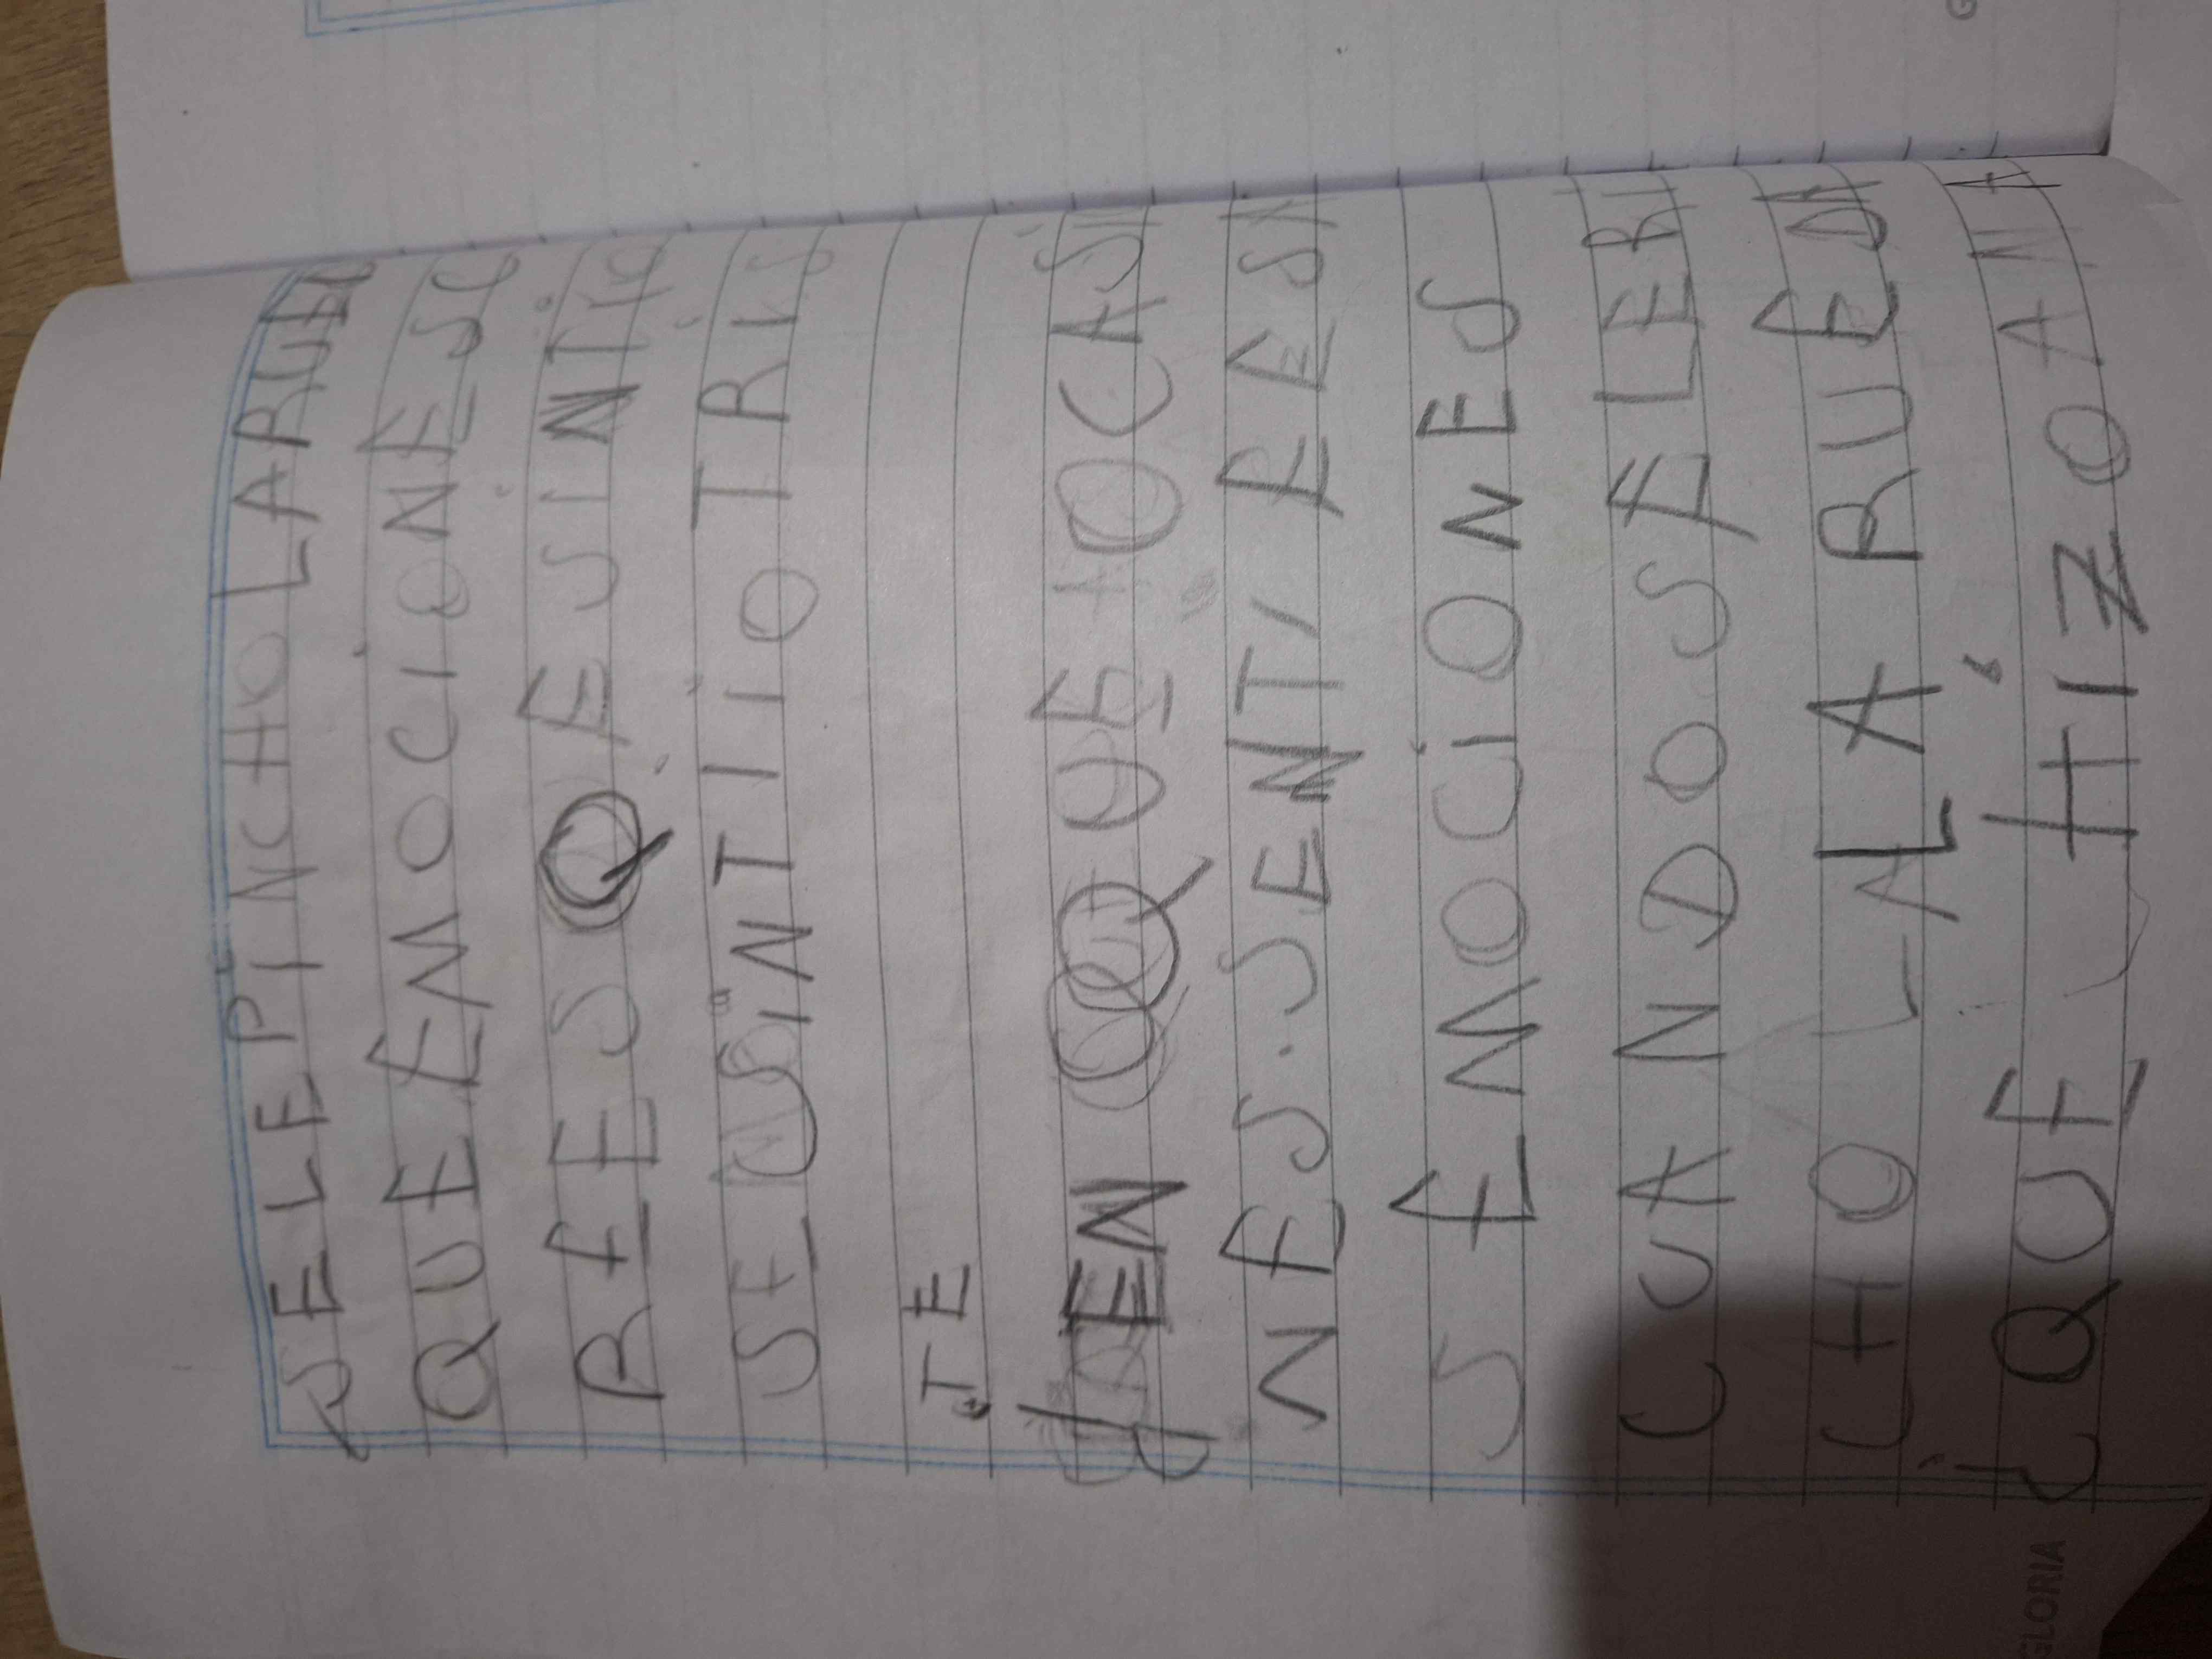 SELEPINCHO LA RUED
QUE EMOCIONESC
REES QESINTIO
SE SINTIIO TRIS
TE
EN QUE HOCASI
NES. SENTI EESA
S EMOCIONES
CUANDO SE LE RI
CHO LA LA RUEDA
¿QUE HIZO ANA
GLORIA